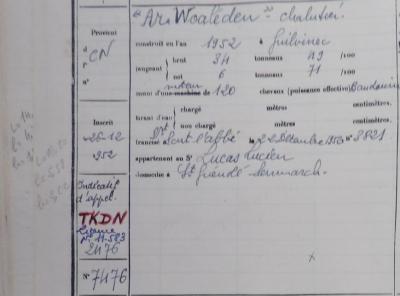 "Ar Woaleden" chalutier.
Provient
d CN
r
n°
construit en l'an 1952 à Guilvinec
jaugeant brut 34 tonneaux 49 /100
net 6 tonneaux 71 /100
muni d'une machine de 120 chevaux (puissance effective) Baudouin
moteur
tirant d'eau chargé mètres centimètres.
non chargé mètres centimètres.
Inscrit
26-12
1952
francisé à Pont l'abbé le 22 Décembre 1952 n° 3821
appartenant au Sr Lucas Lucien
domicilié à
Indicatif
d'appel.
TKDN
licence
N° 11-583
2476
N° 7476
x